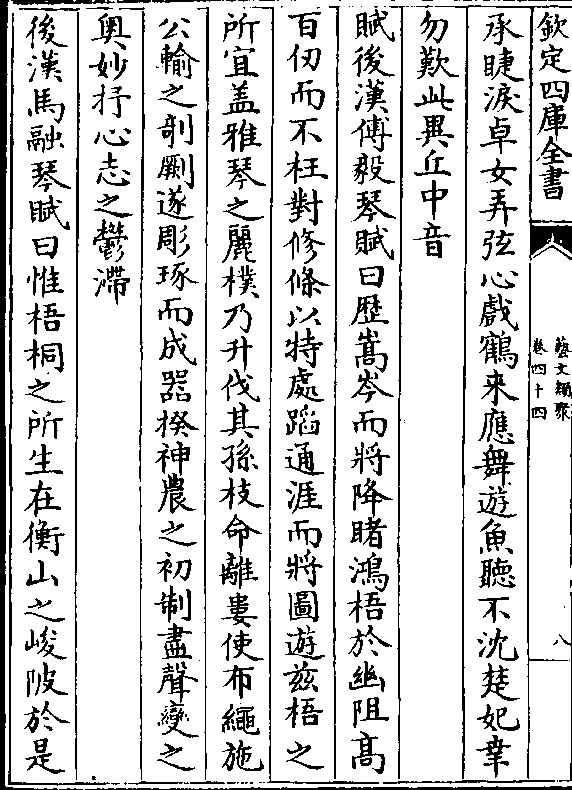 欽定四庫全書
藝文類聚
卷四十四
八
承睫淚卓女弄弦心戲鶴來應舞遊魚聽不沈楚妃幸
勿歎此異丘中音
賦後漢傅毅琴賦曰歷嵩岑而將降睹鴻梧於幽阻高
百仞而不枉對修條以特處蹈通涯而將圖遊兹梧之
所宜盖雅琴之麗樸乃升伐其孫枝命離婁使布繩施
公輸之剞劂遂彫琢而成器揆神農之初制盡聲變之
奥妙抒心志之鬱滯
後漢馬融琴賦曰惟梧桐之所生在衡山之峻陂於是